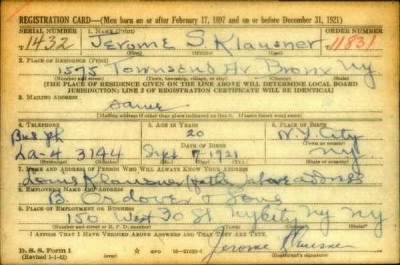 REGISTRATION CARD—(Men born on or after February 17, 1897 and on or before December 31, 1921)
SERIAL NUMBER 1. NAME (Print) ORDER NUMBER
T 1432 Jerome S Klausner 11831
2. PLACE OF RESIDENCE (Print)
1575 Townsend Av Bronx Ny
(Number and street) (Town, township, village, or city) (County) (State)
[THE PLACE OF RESIDENCE GIVEN ON THE LINE ABOVE WILL DETERMINE LOCAL BOARD
JURISDICTION; LINE 2 OF REGISTRATION CERTIFICATE WILL BE IDENTICAL]
3. MAILING ADDRESS
Same
[Mailing address if other than place indicated on line 2. If same insert word same]
4. TELEPHONE 5. AGE IN YEARS 6. PLACE OF BIRTH
20 N.Y. City
DATE OF BIRTH
3144 Sept 7 1921 Ny
7. NAME AND ADDRESS OF PERSON WHO WILL ALWAYS KNOW YOUR ADDRESS
Klausner above address
8. EMPLOYER'S NAME AND ADDRESS
B. Ordover & Sons
9. PLACE OF EMPLOYMENT OR BUSINESS
150 West 30 St Ny City Ny Ny
(Number and street or R. F. D. number) (Town) (County) (State)
I AFFIRM THAT I HAVE VERIFIED ABOVE ANSWERS AND THAT THEY ARE TRUE.
D. S. S. Form 1
(Revised 1-1-42) Jerome Klausner